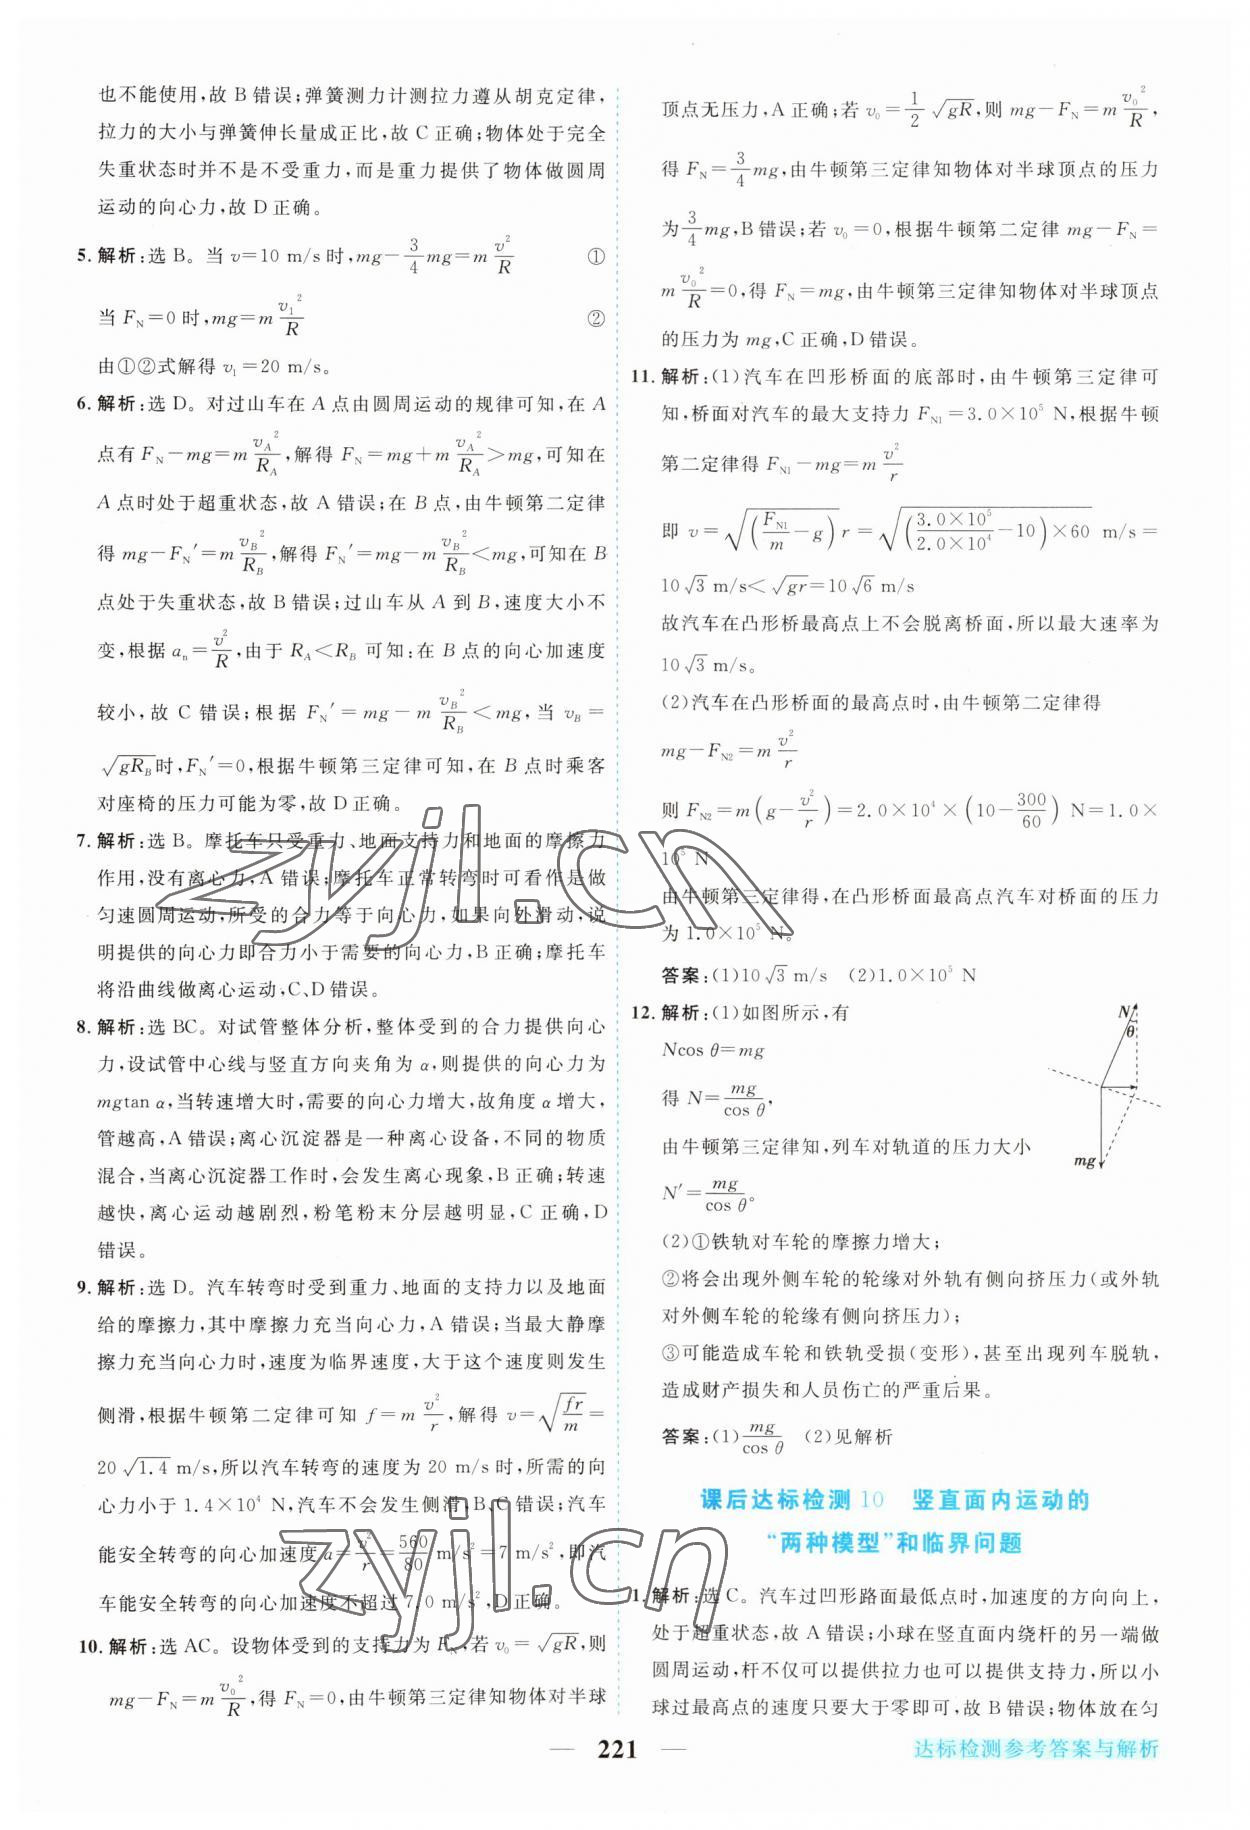 也不能使用,故 B 错误;弹簧测力计测拉力遵从胡克定律,
拉力的大小与弹簧伸长量成正比,故 C 正确;物体处于完全
失重状态时并不是不受重力,而是重力提供了物体做圆周
运动的向心力,故 D 正确。
5. 解析:选 B。当 v=10 m/s 时,mg-3/4 mg=m v²/R ①
当 F_N=0 时,mg=m v₁²/R ②
由①②式解得 v₁=20 m/s。
6. 解析:选 D。对过山车在 A 点由圆周运动的规律可知,在 A
点有 F_N-mg=m v_A²/R_A,解得 F_N=mg+m v_A²/R_A>mg,可知在
A 点时处于超重状态,故 A 错误;在 B 点,由牛顿第二定律
得 mg-F_N′=m v_B²/R_B,解得 F_N′=mg-m v_B²/R_B<mg,可知在 B
点处于失重状态,故 B 错误;过山车从 A 到 B,速度大小不
变,根据 a_n=v²/R,由于 R_A<R_B 可知:在 B 点的向心加速度
较小,故 C 错误;根据 F_N′=mg-m v_B²/R_B<mg,当 v_B=
√(gR_B)时,F_N′=0,根据牛顿第三定律可知,在 B 点时乘客
对座椅的压力可能为零,故 D 正确。
7. 解析:选 B。摩托车只受重力、地面支持力和地面的摩擦力
作用,没有离心力,A 错误;摩托车正常转弯时可看作是做
匀速圆周运动,所受的合力等于向心力,如果向外滑动,说
明提供的向心力即合力小于需要的向心力,B 正确;摩托车
将沿曲线做离心运动,C、D 错误。
8. 解析:选 BC。对试管整体分析,整体受到的合力提供向心
力,设试管中心线与竖直方向夹角为 α,则提供的向心力为
mgtan α,当转速增大时,需要的向心力增大,故角度 α 增大,
管越高,A 错误;离心沉淀器是一种离心设备,不同的物质
混合,当离心沉淀器工作时,会发生离心现象,B 正确;转速
越快,离心运动越剧烈,粉笔粉末分层越明显,C 正确,D
错误。
9. 解析:选 D。汽车转弯时受到重力、地面的支持力以及地面
给的摩擦力,其中摩擦力充当向心力,A 错误;当最大静摩
擦力充当向心力时,速度为临界速度,大于这个速度则发生
侧滑,根据牛顿第二定律可知 f=m v²/r,解得 v=√(fr/m)=
20√1.4 m/s,所以汽车转弯的速度为 20 m/s 时,所需的向
心力小于 1.4×10⁴ N,汽车不会发生侧滑,B、C 错误;汽车
能安全转弯的向心加速度 a=v²/r=560/80 m/s²=7 m/s²,即汽
车能安全转弯的向心加速度不超过 7.0 m/s²,D 正确。
10. 解析:选 AC。设物体受到的支持力为 F_N,若 v₀=√(gR),则
mg-F_N=m v₀²/R,得 F_N=0,由牛顿第三定律知物体对半球
顶点无压力,A 正确;若 v₀=1/2 √(gR),则 mg-F_N=m v₀²/R,
得 F_N=3/4 mg,由牛顿第三定律知物体对半球顶点的压力
为3/4 mg,B 错误;若 v₀=0,根据牛顿第二定律 mg-F_N=
m v₀²/R=0,得 F_N=mg,由牛顿第三定律知物体对半球顶点
的压力为 mg,C 正确,D 错误。
11. 解析:(1)汽车在凹形桥面的底部时,由牛顿第三定律可
知,桥面对汽车的最大支持力 F_N1=3.0×10⁵ N,根据牛顿
第二定律得 F_N1-mg=m v²/r
即 v=√((F_N1/m-g)r)=√((3.0×10⁵/2.0×10⁴-10)×60) m/s=
10√3 m/s<√(gr)=10√6 m/s
故汽车在凸形桥最高点上不会脱离桥面,所以最大速率为
10√3 m/s。
(2)汽车在凸形桥面的最高点时,由牛顿第二定律得
mg-F_N2=m v²/r
则 F_N2=m(g-v²/r)=2.0×10⁴×(10-300/60) N=1.0×
10⁵ N
由牛顿第三定律得,在凸形桥面最高点汽车对桥面的压力
为 1.0×10⁵ N。
答案:(1)10√3 m/s (2)1.0×10⁵ N
12. 解析:(1)如图所示,有
Ncos θ=mg
得 N=mg/cos θ,
由牛顿第三定律知,列车对轨道的压力大小
N′=mg/cos θ。
N
θ
mg
(2)①铁轨对车轮的摩擦力增大;
②将会出现外侧车轮的轮缘对外轨有侧向挤压力(或外轨
对外侧车轮的轮缘有侧向挤压力);
③可能造成车轮和铁轨受损(变形),甚至出现列车脱轨,
造成财产损失和人员伤亡的严重后果。
答案:(1)mg/cos θ (2)见解析
课后达标检测 10 竖直面内运动的
“两种模型”和临界问题
1. 解析:选 C。汽车过凹形路面最低点时,加速度的方向向上,
处于超重状态,故 A 错误;小球在竖直面内绕杆的另一端做
圆周运动,杆不仅可以提供拉力也可以提供支持力,所以小
球过最高点的速度只要大于零即可,故 B 错误;物体放在匀
— 221 —
达标检测参考答案与解析
zyjl.cn
zyjl.cn